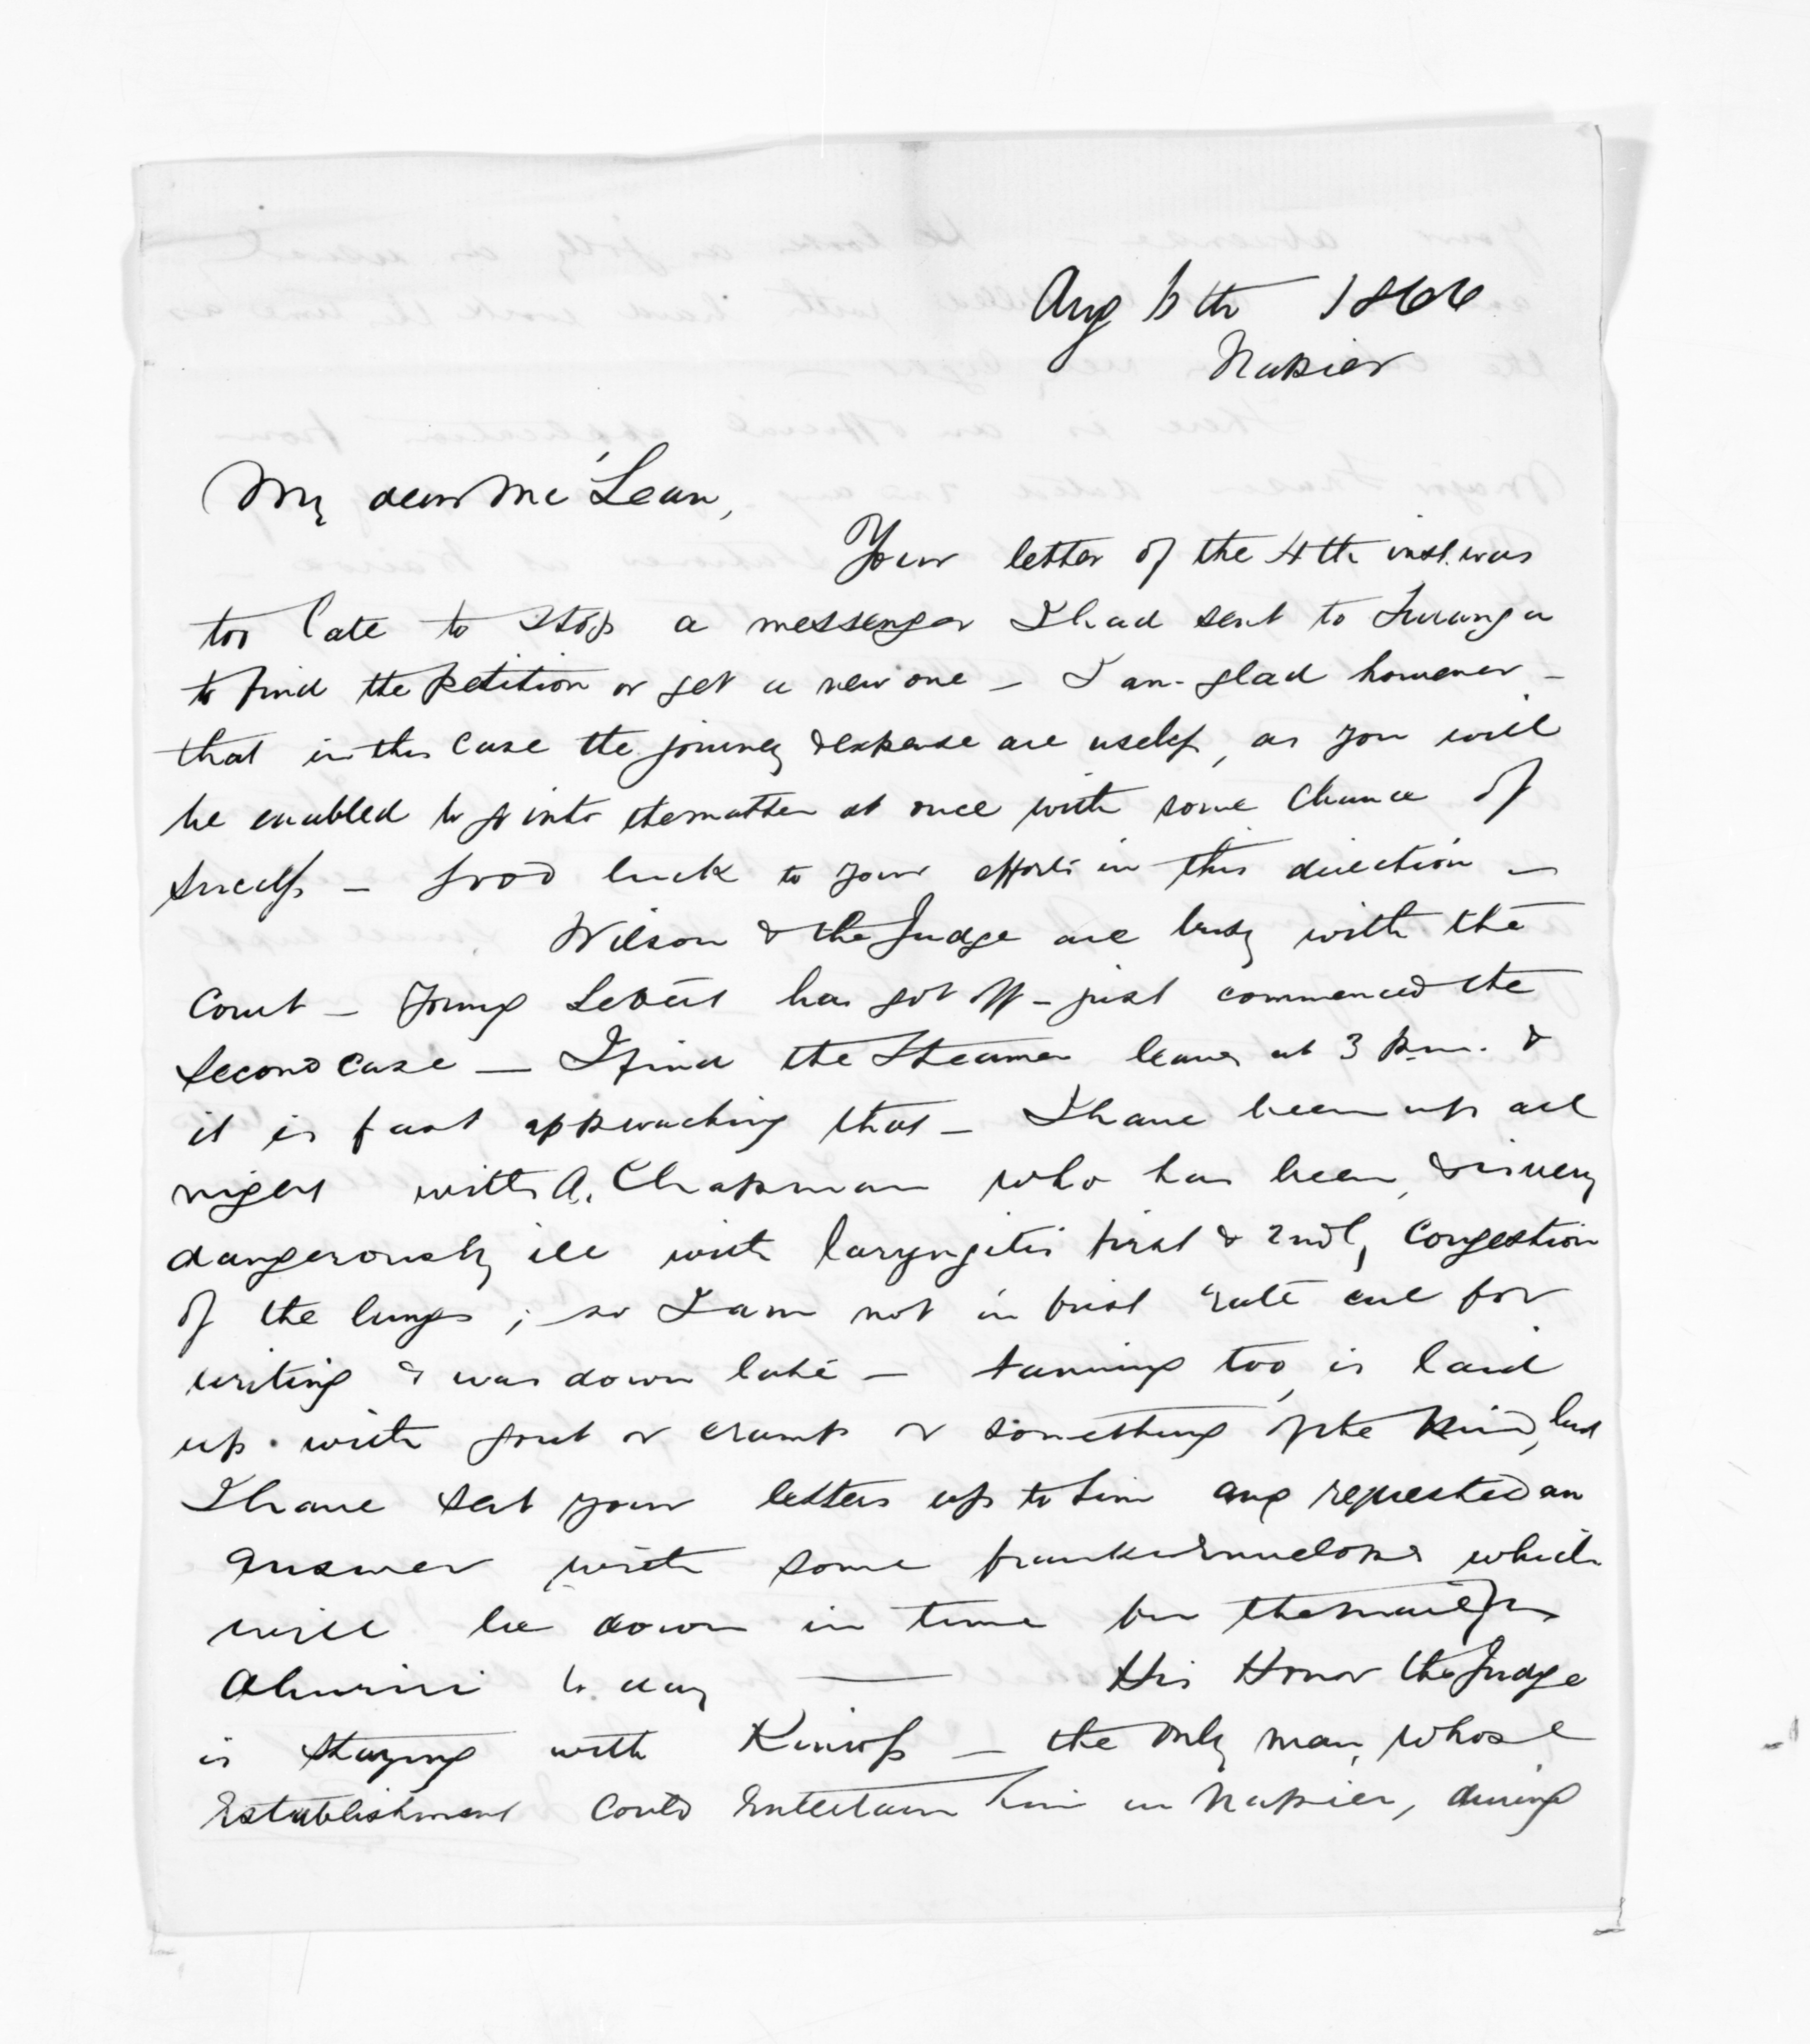 Aug 6th 1866
Napier
My dear McLean,
Your letter of the 4th inst. was
too late to stop a messenger I had sent to Turanga
to find the petition or get a new one – I am glad however –
that in this case the journey & expense are useless, as you will
be enabled to go into the matter at once with some chance of
success – good luck to your efforts in this direction –
Wilson & the Judge are busy with the
Court – young has got off – just commenced the
second case – I find the Steamer leaves at 3 p.m. &
it is fast approaching that – I have been up all
night with A. Chapman who has been, & is very
dangerously ill with laryngitis first & 2ndly, congestion
of the lungs ; so I am not in first rate cue for
writing & was down late – too, is laid
up with gout or cramp or something of the kind, but
I have sent your letters up to him and requested an
answer with some franked envelopes which
will be down in time for the mail for
Ahuriri to day — His Honor the Judge
is staying with Kinross – the only man, whose
establishment could entertain him in Napier, during